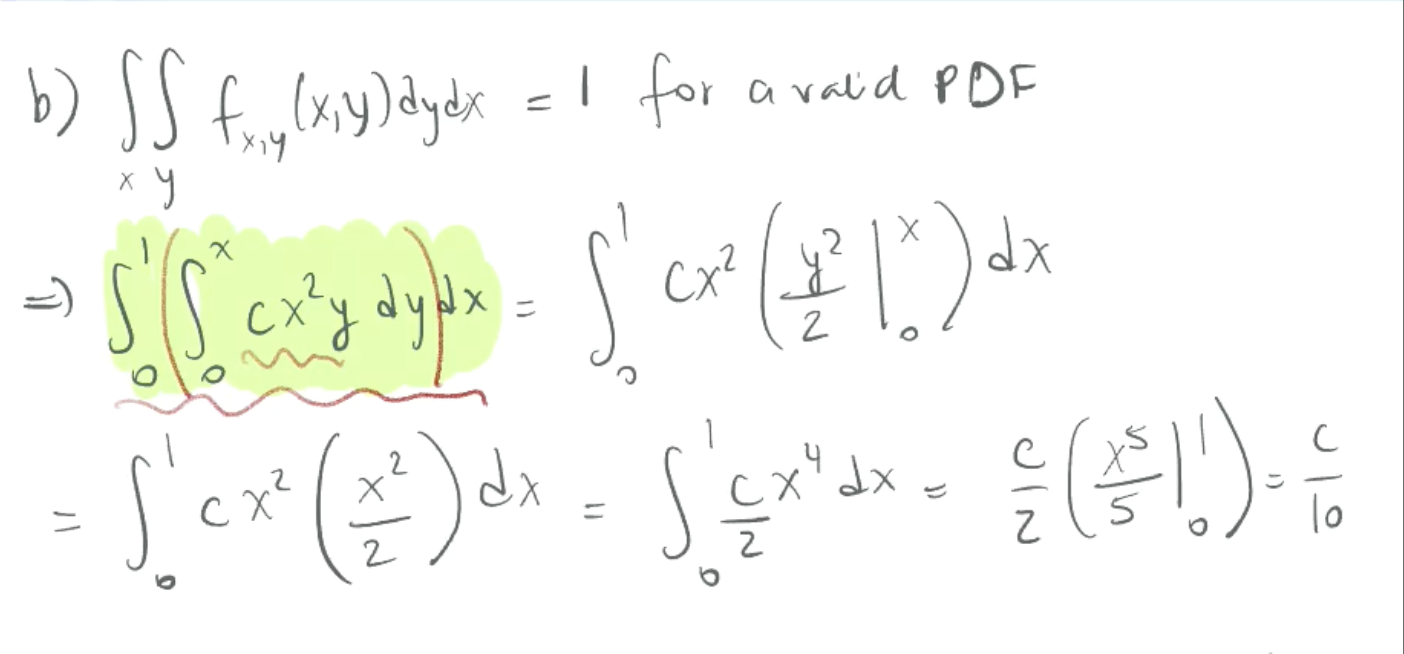 b) ∫∫ f_{x,y}(x,y)dydx = 1 for a valid PDF
x y
=) ∫_0^1 (∫_0^x cx²y dy)dx = ∫_0^1 cx² (y²/2 |_0^x) dx
= ∫_0^1 cx² (x²/2) dx = ∫_0^1 c/2 x⁴ dx = c/2 (x⁵/5 |_0^1) = c/10